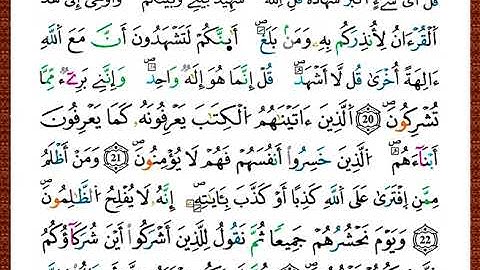 قُلَ اَيُّ شَےْءٍ اَكْبَرُ شَهَٰدَةً قُلِ اِللَّهُ شَهِيدُۢ بَيْنِے وَبَيْنَكُمْ وَأُوحِيَ إِلَيَّ هَٰذَا
اَ۬لْقُرْءَانُ لِأُنذِرَكُم بِهِۦ وَمَنۢ بَلَغَۖ أَئِنَّكُمْ لَتَشْهَدُونَ أَنَّ مَعَ اَ۬للَّهِ
ءَالِهَةً أُخْر۪ىٰ قُل لَّا أَشْهَدُۖ قُلِ اِنَّمَا هُوَ إِلَٰهٞ وَٰحِدٞۖ وَإِنَّنِے بَرِےٓءٞ مِّمَّا
تُشْرِكُونَۖ ﴿20﴾ اَ۬لذِينَ ءَاتَيْنَٰهُمُ اُ۬لْكِتَٰبَ يَعْرِفُونَهُۥ كَمَا يَعْرِفُونَ
أَبْنَآءَهُمُ اُ۬لذِينَ خَسِرُوٓاْ أَنفُسَهُمْ فَهُمْ لَا يُؤْمِنُونَۖ ﴿21﴾ وَمَنَ اَظْلَمُ
مِمَّنِ اِ۪فْتَر۪ىٰ عَلَى اَ۬للَّهِ كَذِباً اَوْ كَذَّبَ بِـَٔايَٰتِهِۦۖ إِنَّهُۥ لَا يُفْلِحُ اُ۬لظَّٰلِمُونَۖ
﴿22﴾ وَيَوْمَ نَحْشُرُهُمْ جَمِيعاً ثُمَّ نَقُولُ لِلذِينَ أَشْرَكُوٓاْ أَيْنَ شُرَكَآؤُكُمُ